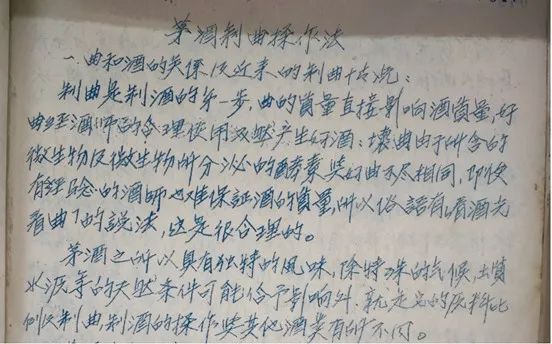 茅酒制曲操作法
一.曲和酒的关係及近来的制曲情况：
制曲是制酒的第一步，曲的質量直接影响酒質量，好
曲经酒师的合理使用双必产生好酒；壞曲由于所含的
微生物及微生物所分泌的酵素與好曲不尽相同，即使
有经验的酒师也难保証酒的質量，所以俗語有「看酒先
看曲」的説法，这是很合理的。
茅酒之所以具有独特的風味，除特殊的气候，土質
水源等的天然条件可能给予影响外，就是它的原料比
例及制曲制酒的操作與其他酒类有所不同。